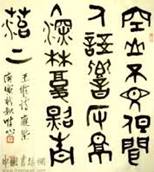 空山不見人但聞
人語響返景入
深林復照青
苔上
王維詩鹿柴